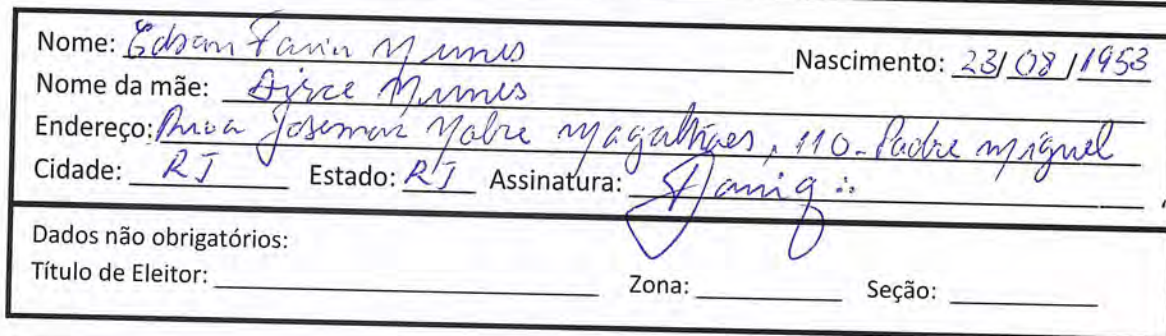 Nome: Edson Faria Nunes Nascimento: 23/08/1953
Nome da mãe: Dirce Nunes
Endereço: Josemar Magalhães, 110 - Padre Miguel
Cidade: RJ Estado: RJ Assinatura:
Dados não obrigatórios:
Título de Eleitor: Zona: Seção: